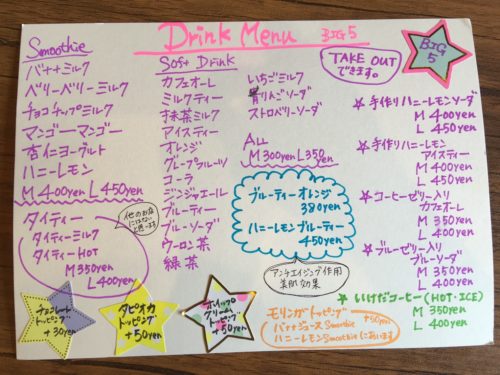 Drink Menu BIG5
BIG
5
TAKE OUT
できます。
Smoothie
バナナミルク
ベリーベリーミルク
チョコチップミルク
マンゴーマンゴー
杏仁ヨーグルト
ハニーレモン
M 400yen L 450yen
タイティー
タイティーミルク
タイティーHOT
M 350yen
L 400yen
他のお店
にはない
と思います
Soft Drink
カフェオーレ
ミルクティー
抹茶ミルク
アイスティー
オレンジ
グレープフルーツ
コーラ
ジンジャエール
ブルーティー
ブルーソーダ
ウーロン茶
緑茶
いちごミルク
青りんごソーダ
ストロベリーソーダ
ALL
M 300yen L 350yen
ブルーティーオレンジ
380yen
ハニーレモンブルーティー
450yen
アンチエイジング作用
美肌効果
☆手作りハニーレモンソーダ
M 400yen
L 450yen
☆手作りハニーレモン
アイスティー
M 400yen
L 450yen
☆コーヒーゼリー入り
カフェオーレ
M 350yen
L 400yen
☆ブルーゼリー入り
ブルーソーダ
M 350yen
L 400yen
☆いけだコーヒー(HOT・ICE)
M 350yen
L 400yen
チョコレート
トッピング
+30yen
タピオカ
トッピング
+50yen
ホイップ
クリーム
トッピング
+50yen
モリンガトッピング +50yen
バナナジュースSmoothie
ハニーレモンSmoothieにあいます